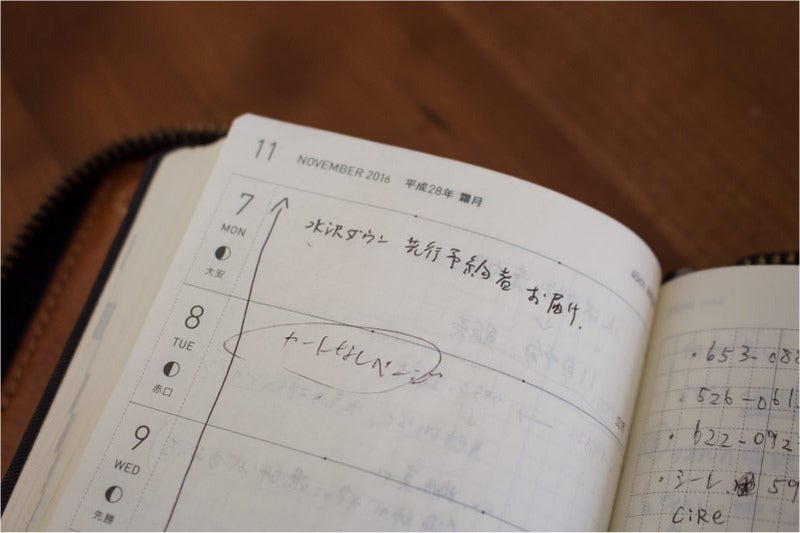 11 NOVEMBER 2016 平成28年 霜月
7
MON
大安
水沢ダウン 先行予約者 お届け.
8
TUE
赤口
9
WED
先勝
・653-088
・526-061
・622-092
・シーレ 59
CiRe